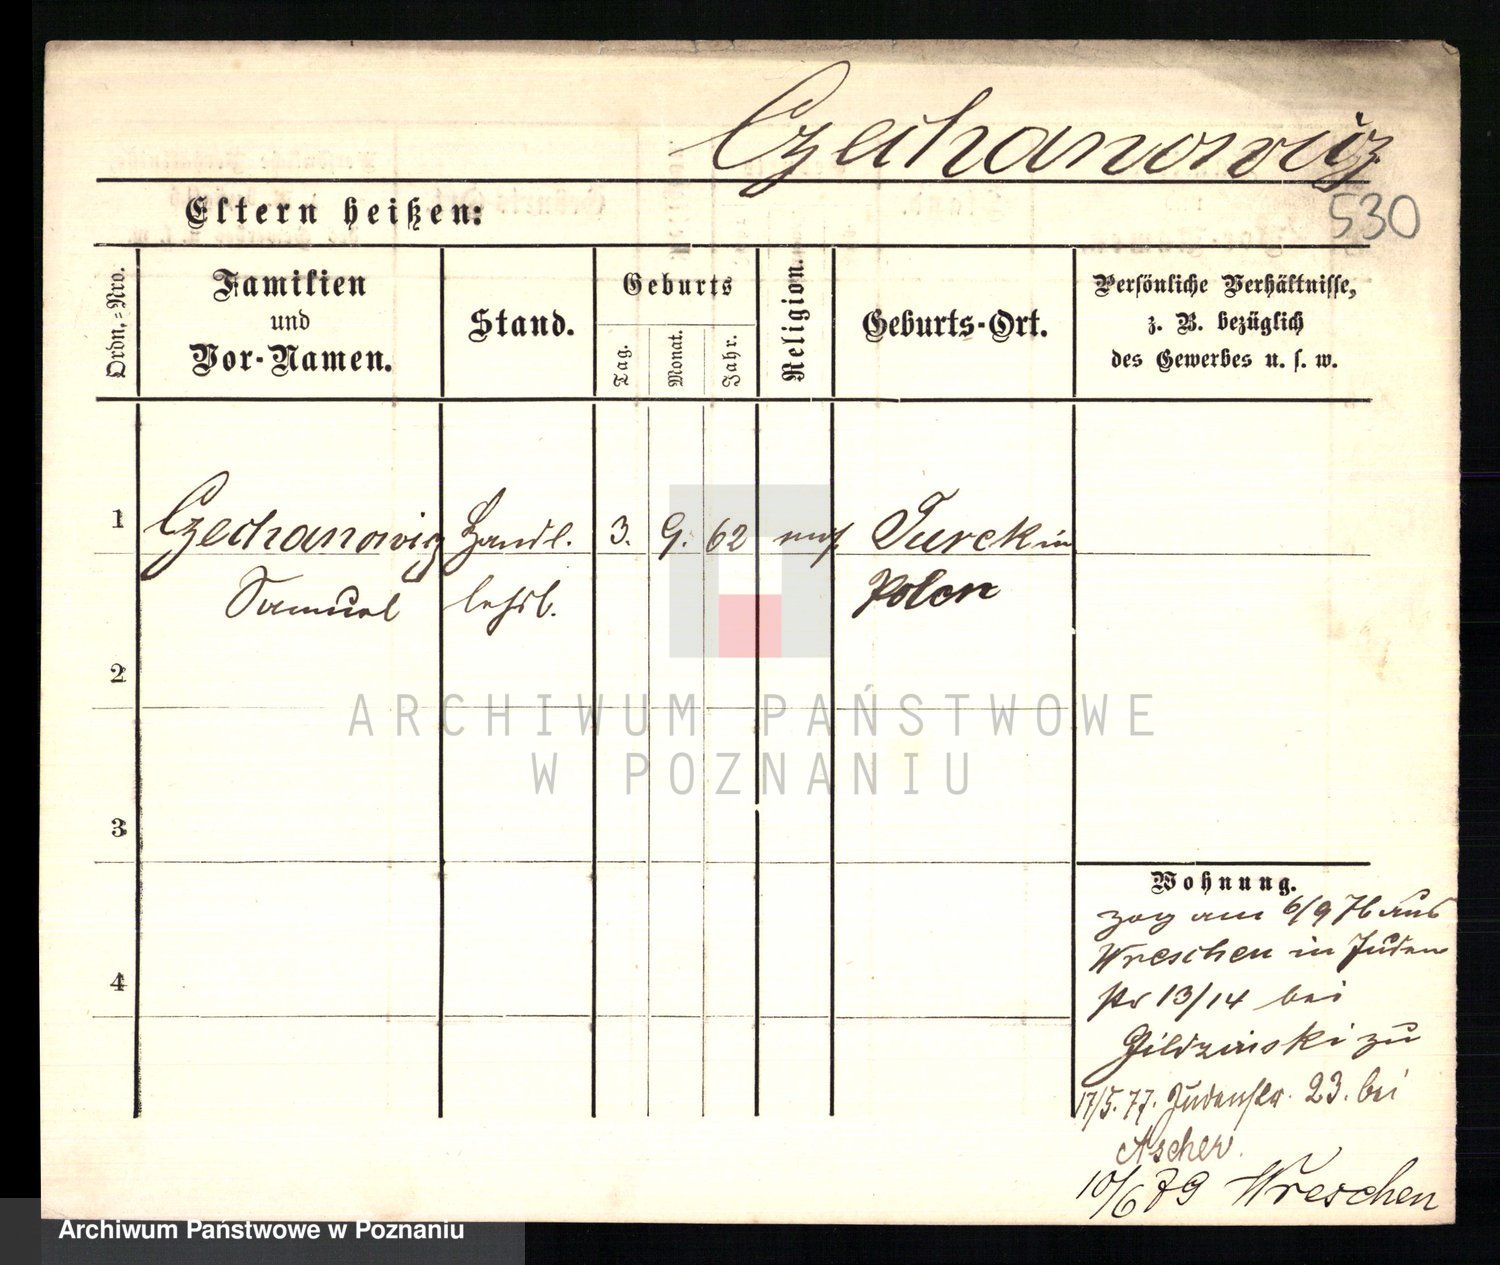 Czechanowicz
530
Eltern heißen:
Ordn.=Nro.
Familien
und
Vor-Namen.
Stand.
Geburts
Tag.
Monat.
Jahr.
Religion.
Geburts-Ort.
Persönliche Verhältnisse,
z. B. bezüglich
des Gewerbes u. s. w.
1
Czechanowicz
Samuel
Handl.
lehrl.
3.
9.
62
mos.
Turek in
Polen
2
3
4
Wohnung.
zog am 6/9 76 aus
Wreschen in Juden
str 13/14 bei
zu
17/5. 77. Judenstr. 23. bei
Ascher.
10/6 79 Wreschen
ARCHIWUM PAŃSTWOWE
W POZNANIU
Archiwum Państwowe w Poznaniu